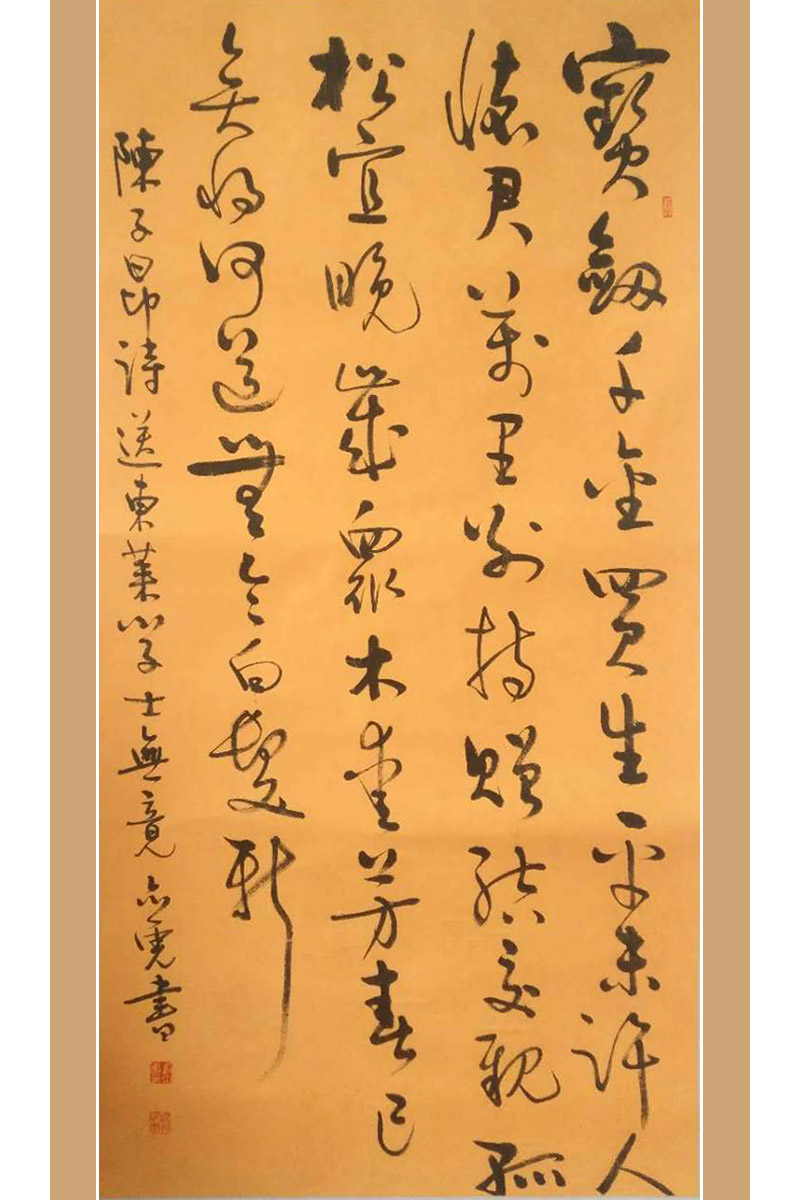 寶劒千金買生平未許人
懷君萬里別持贈結交親孤
松宜晚歲衆木愛芳春已
矣將何道無令白髮新
陳子昂詩送東萊學士無竟 書